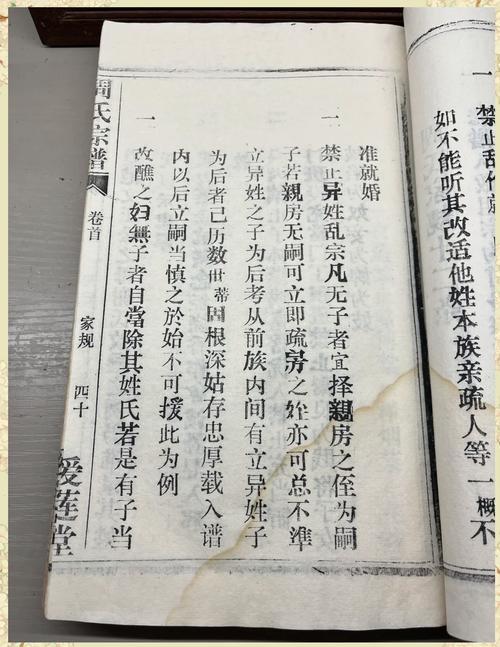 一 禁止乱
如不能听其改适他姓本族亲疏人等一概不
准就婚
一 禁止异姓乱宗凡无子者宜择親房之侄为嗣
子若親房无嗣可立即疏房之姪亦可总不準
立异姓之子为后考从前族内间有立异姓子
为后者己历数世蒂固根深姑存忠厚载入谱
内以后立嗣当慎之於始不可援此为例
一 改醮之妇無子者自當除其姓氏若是有子当
周氏宗譜
卷首
家规
四十
爱莲堂